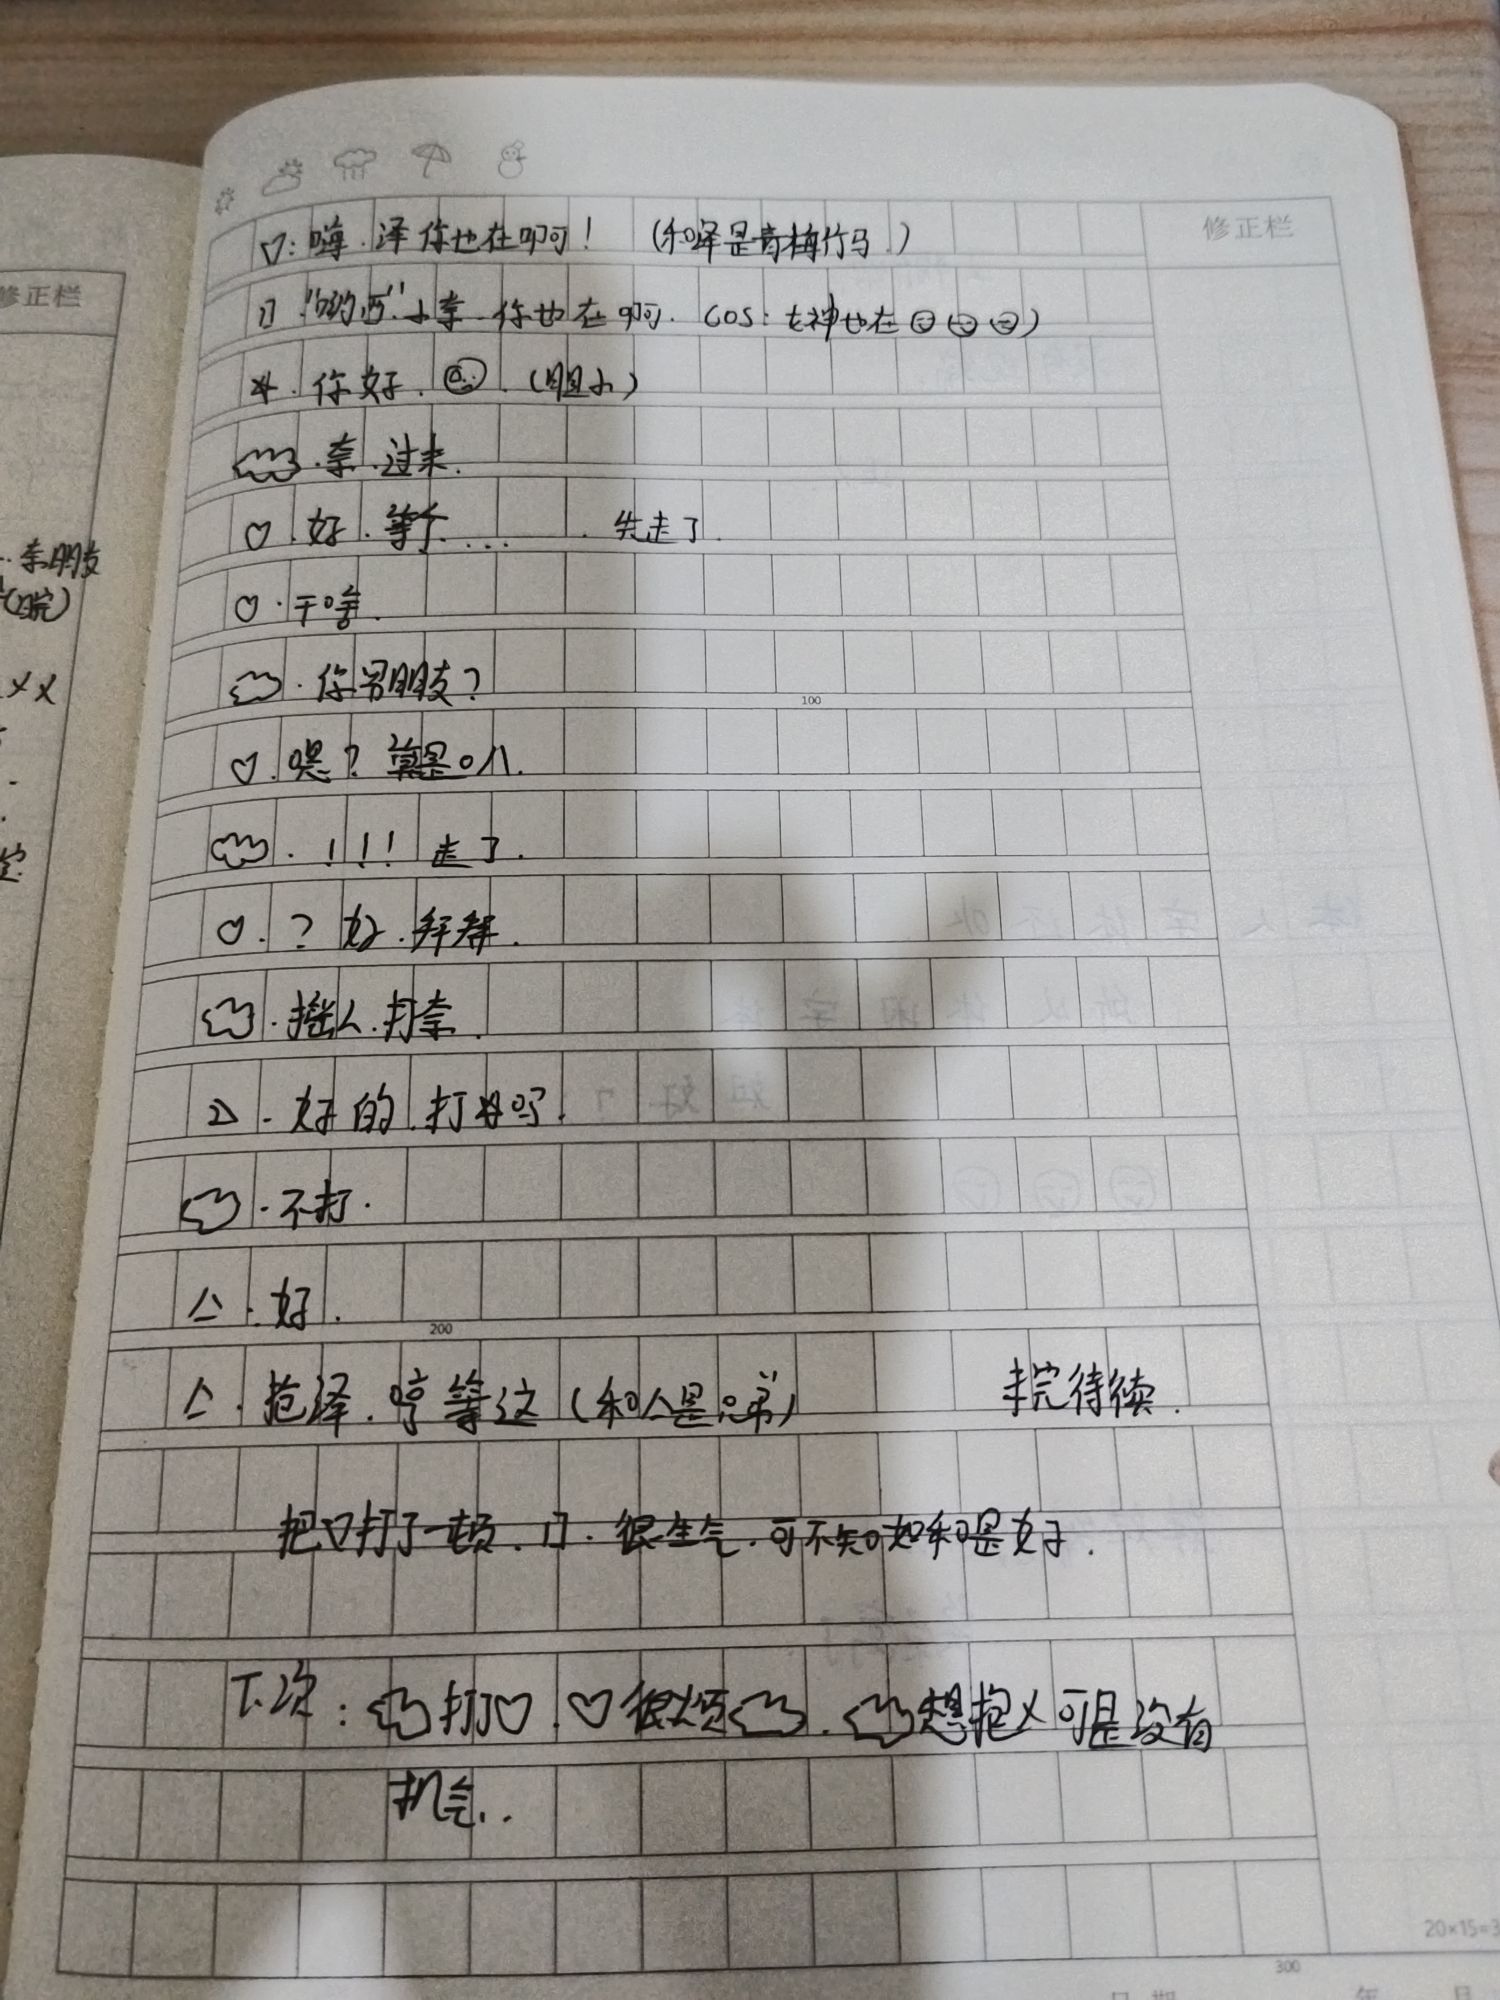 修正栏
修正栏
♡：嗨.泽你也在啊！（和泽是青梅竹马.）
"哟西"小奈.你也在啊. COS：女神也在）
你好.（胆小）
.奈.过来.
奈朋友
♡.好.等个... .先走了.
♡.干啥.
.你男朋友？
100
♡.嗯？算是吧.
.！！！走了.
♡.？好.拜拜.
.摇人.打奈.
.好的.打
.不打.
△.好.
200
△.抢泽.哼等这（和△是兄弟） 未完待续.
把♡打了一顿. 很生气.可不知如和是好.
下次：打♡.♡很烦.想抱乂可是没有
机会..
20×15=3
300